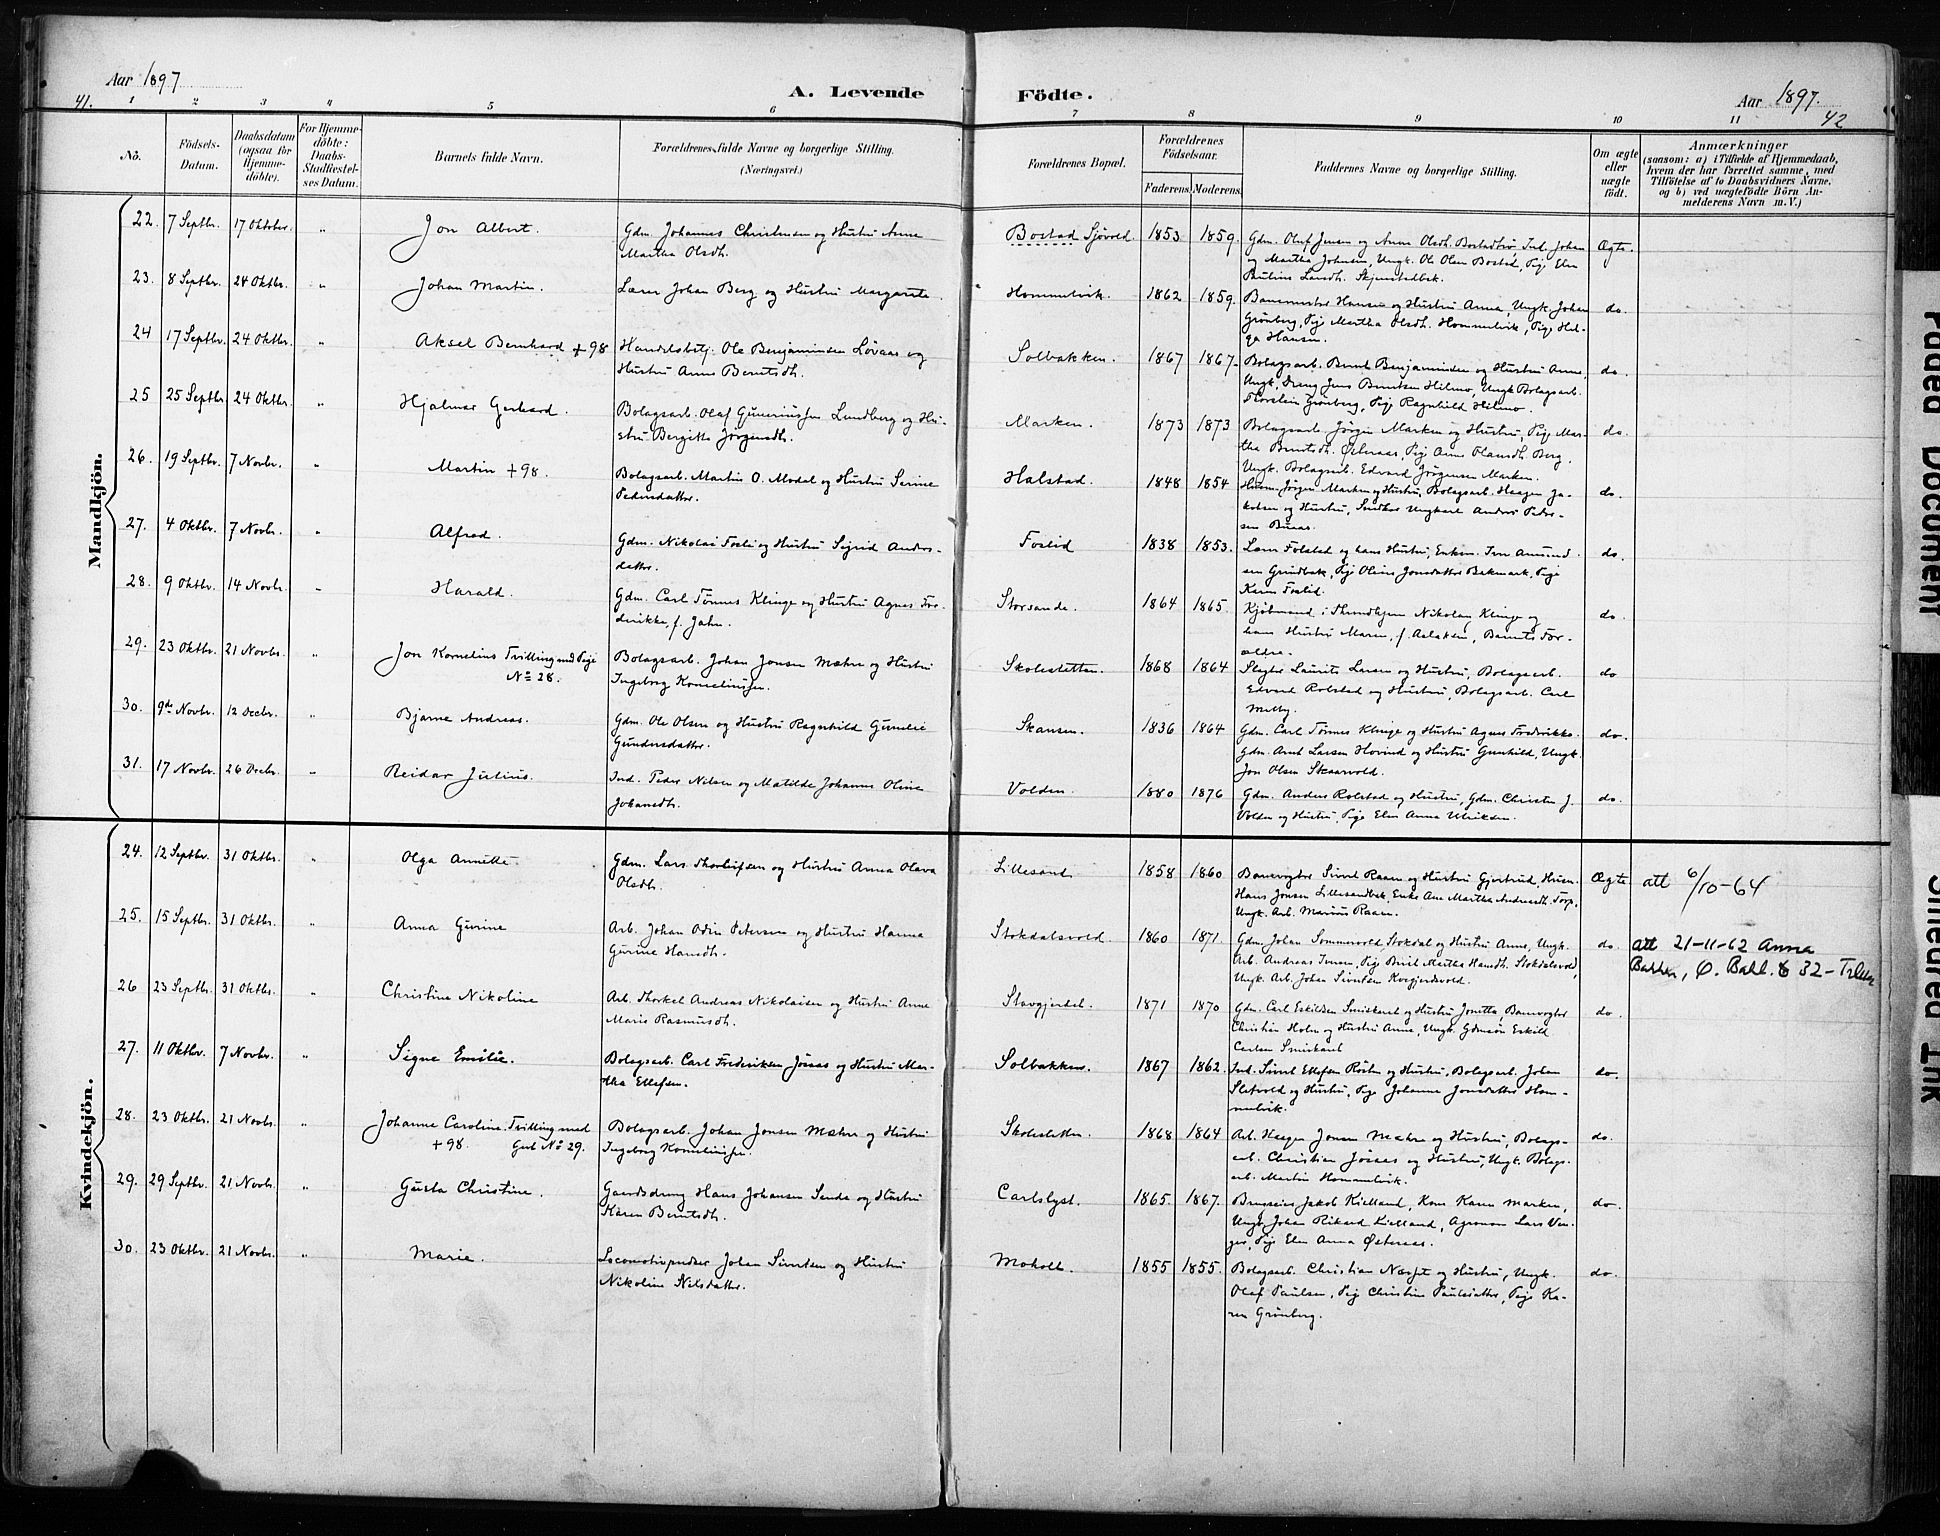 Aar 1897
A. Levende Födte.
Aar 1897.
41.
42
1 2 3 4 5 6 7 8 9 10 11
No.
Födsels-Datum.
Daabsdatum (ogsaa for Hjemme-döbte).
For Hjemme-döbte: Daabs-Stadfæstel-ses Datum.
Barnets fulde Navn.
Forældrenes fulde Navne og borgerlige Stilling. (Næringsvei.)
Forældrenes Bopæl.
Forældrenes Födselsaar.
Faderens. Moderens.
Faddernes Navne og borgerlige Stilling.
Om ægte eller uægte födt.
Anmærkninger
(saasom: a) i Tilfælde af Hjemmedaab, hvem der har forrettet samme, med Tilföielse af to Daabsvidners Navne, og b) ved uægtefödte Börn An-melderens Navn m. V.)
Mandkjön.
22. 7 Septbr. 17 Oktober. " Jon Albert. Gdm. Johannes Christensen og Hustru Anne Martha Olsdh. Bostad Sjövold 1853 1859. Gdm. Oluf Jensen og Anne Olsdh. Bostadtrø, Ind. Johan og Martha Johnsen, Ungk. Ole Olsen Bostad, Pige Elen Pauline Larsdh. Ægte.
23. 8 Septbr. 24 Oktbr. " Johan Martin. Lærer Johan Berg og Hustru Margarete. Hommelvik. 1862 1859. Banemester Hansen og Hustru Anna, Ungk. Johan Grönberg, Pige Martha Olsdh. Hommelvik, Pige Helga Hansen. do.
24 17 Septbr. 24 Oktbr. " Aksel Bernhard +98 Handelsbetj. Ole Benjaminsen Løvaas og Hustru Anne Berntsdh. Solbakken. 1867 1867. Bolagsarb. Bernt Benjaminsen og Hustru Anne, Ungk. Dreng Jens Berntsen Hilmo, Ungk. Bolagsarb. Thorstein Grönberg, Pige Ragnhild Hilmo. do.
25 25 Septbr. 24 Oktbr. " Hjalmar Gerhard. Bolagsarb. Olaf Lundberg og Hustru Bergitte Jörgensdh. Marken. 1873 1873 Bolagsarb. Jörgen Marken og Hustru, Pige Martha Berntsdh. Østeraas, Pige Anne Olausdh. Berg, Ungk. Bolagsarb. Edvard Jörgensen Marken. do.
26. 19 Septbr. 7 Novbr. " Martin +98. Bolagsarb. Martin O. Modal og Hustru Serine Pedersdatter. Halstad. 1848 1854 Husm. Jörgen Marken og Hustru, Bolagsarb. Haagen Jakobsen og Hustru, Ungkarl Anders Pedersen Buaas. do.
27. 4 Oktbr. 7 Novbr. " Alfred. Gdm. Nikolai Foslid og Hustru Sigrid Andersdatter. Foslid 1838 1853. Lærer Folstad og hans Hustru, Enkem. Iver Amundsen Grindbak, Pige Oline Jonsdatter Bakmark, Pige Karen Foslid. do.
28. 9 Oktbr. 14 Novbr. " Harald. Gdm. Carl Tönnes Klinge og Hustru Agnes Frederikke, f. Jahn. Storsande. 1864 1865. Kjöbmand i Throndhjem Nikolay Klinge og hans Hustru Maren, f. Aalaken, Barnets Forældre. do.
29. 23 Oktbr. 21 Novbr. " Jon Kornelius Tvilling med Pige No 28. Bolagsarb. Johan Jonsen Mæhre og Hustru Ingeborg Korneliusen. Skolesletten. 1868 1864 Slagter Laurits Larsen og Hustru, Bolagsarb. Edvard Rolstad og Hustru, Bolagsarb. Carl Melby. do
30. 9de Novbr. 12 Decbr. " Bjarne Andreas. Gdm. Ole Olsen og Hustru Ragnhild Gurelie Gundersdatter. Skansen. 1836 1864 Gdm. Carl Tönnes Klinge og Hustru Agnes Fredrikke. Gdm. Arnt Larsen Hovind og Hustru Gunhild, Ungk. Jon Olsen Skaarvold. do.
31. 17 Novbr. 26 Decbr. " Reidar Julius. Ind. Peder Nilsen og Matilde Johanna Oline Johansdh. Volden. 1880 1876 Gdm. Anders Rolstad og Hustru, Gdm. Christen J. Volden og Hustru, Pige Elen Anna Ulriksen. do.
Kvindekjön.
24. 12 Septbr. 31 Oktbr. " Olga Annette. Gdm. Lars Thorleifsen og Hustru Anna Olava Olsdh. Lillesand. 1858 1860 Banevogter Sivert Raaen og Hustru Gjertrud, Husm. Hans Jonsen Lillesandbak, Enke Ane Martha Andreasdh. Torp, Ungk. Arb. Marius Raaen. Ægte att 6/10-64
25. 15 Septbr. 31 Oktbr. " Anna Gurine Arb. Johan Odin Petersen og Hustru Hanna Gurine Hansdh. Stokdalsvold. 1860 1871. Gdm. Johan Sommervold Stokdal og Hustru Anne, Ungk. Arb. Andreas Iversen, Pige Beret Martha Hansdh. Stokdalsvold, Ungk. Arb. Johan Sivertsen do. att 21-11-62 Anna Bakken, Ø. Bakl. 32-
26 23 Septbr. 31 Oktbr. " Christine Nikoline Arb. Thorkel Andreas Nikolaisen og Hustru Anne Marie Rasmusdh. Stavgjerdet. 1871 1870 Gdm. Carl Eskildsen Smiskaret og Hustru Jonetta, Banevogter Christian Holm og Hustru Anne, Ungk. Gdmsön Eskild Carlsen Smiskaret do.
27. 11 Oktbr. 7 Novbr. " Signe Emilie. Bolagsarb. Carl Frederiksen Jösaas og Hustru Martha Ellefsen. Solbakken. 1867 1862. Ind. Sivert Ellefsen og Hustru, Bolagsarb. Johan Sletvold og Hustru, Pige Johanne Jonsdatter Hommelvik. do.
28. 23 Oktbr. 21 Novbr. " Johanne Caroline. Tvilling med Gut No 29. +98. Bolagsarb. Johan Jonsen Mæhre og Hustru Ingeborg Korneliusen. Skolesletten. 1868 1864 Arb. Haagen Jonsen Mæhre og Hustru, Bolagsarb. Christian Jösaas og Hustru, Ungk. Bolagsarb. Martin Hommelvik. do.
29. 29 Septbr. 21 Novbr. " Gusta Christine. Gaardsdreng Hans Johansen Sende og Hustru Karen Berntsdh. Carlslyst. 1865. 1867. Brugseier Jakob Kielland, Kone Karen Marken, Ungk. Johan Rikard Kielland, Agronom Lars Venger, Pige Elen Anna Østeraas. do.
30. 23 Oktbr. 21 Novbr. " Marie. Locomotivpudser Johan Sivertsen og Hustru Nikoline Nilsdatter. Moholt. 1855 1855. Bolagsarb. Christian Næsset og Hustru, Ungk. Olaf Paulsen, Pige Christine Paulsdatter, Pige Karen Grönberg. do.
Faded Document
Smeared Ink